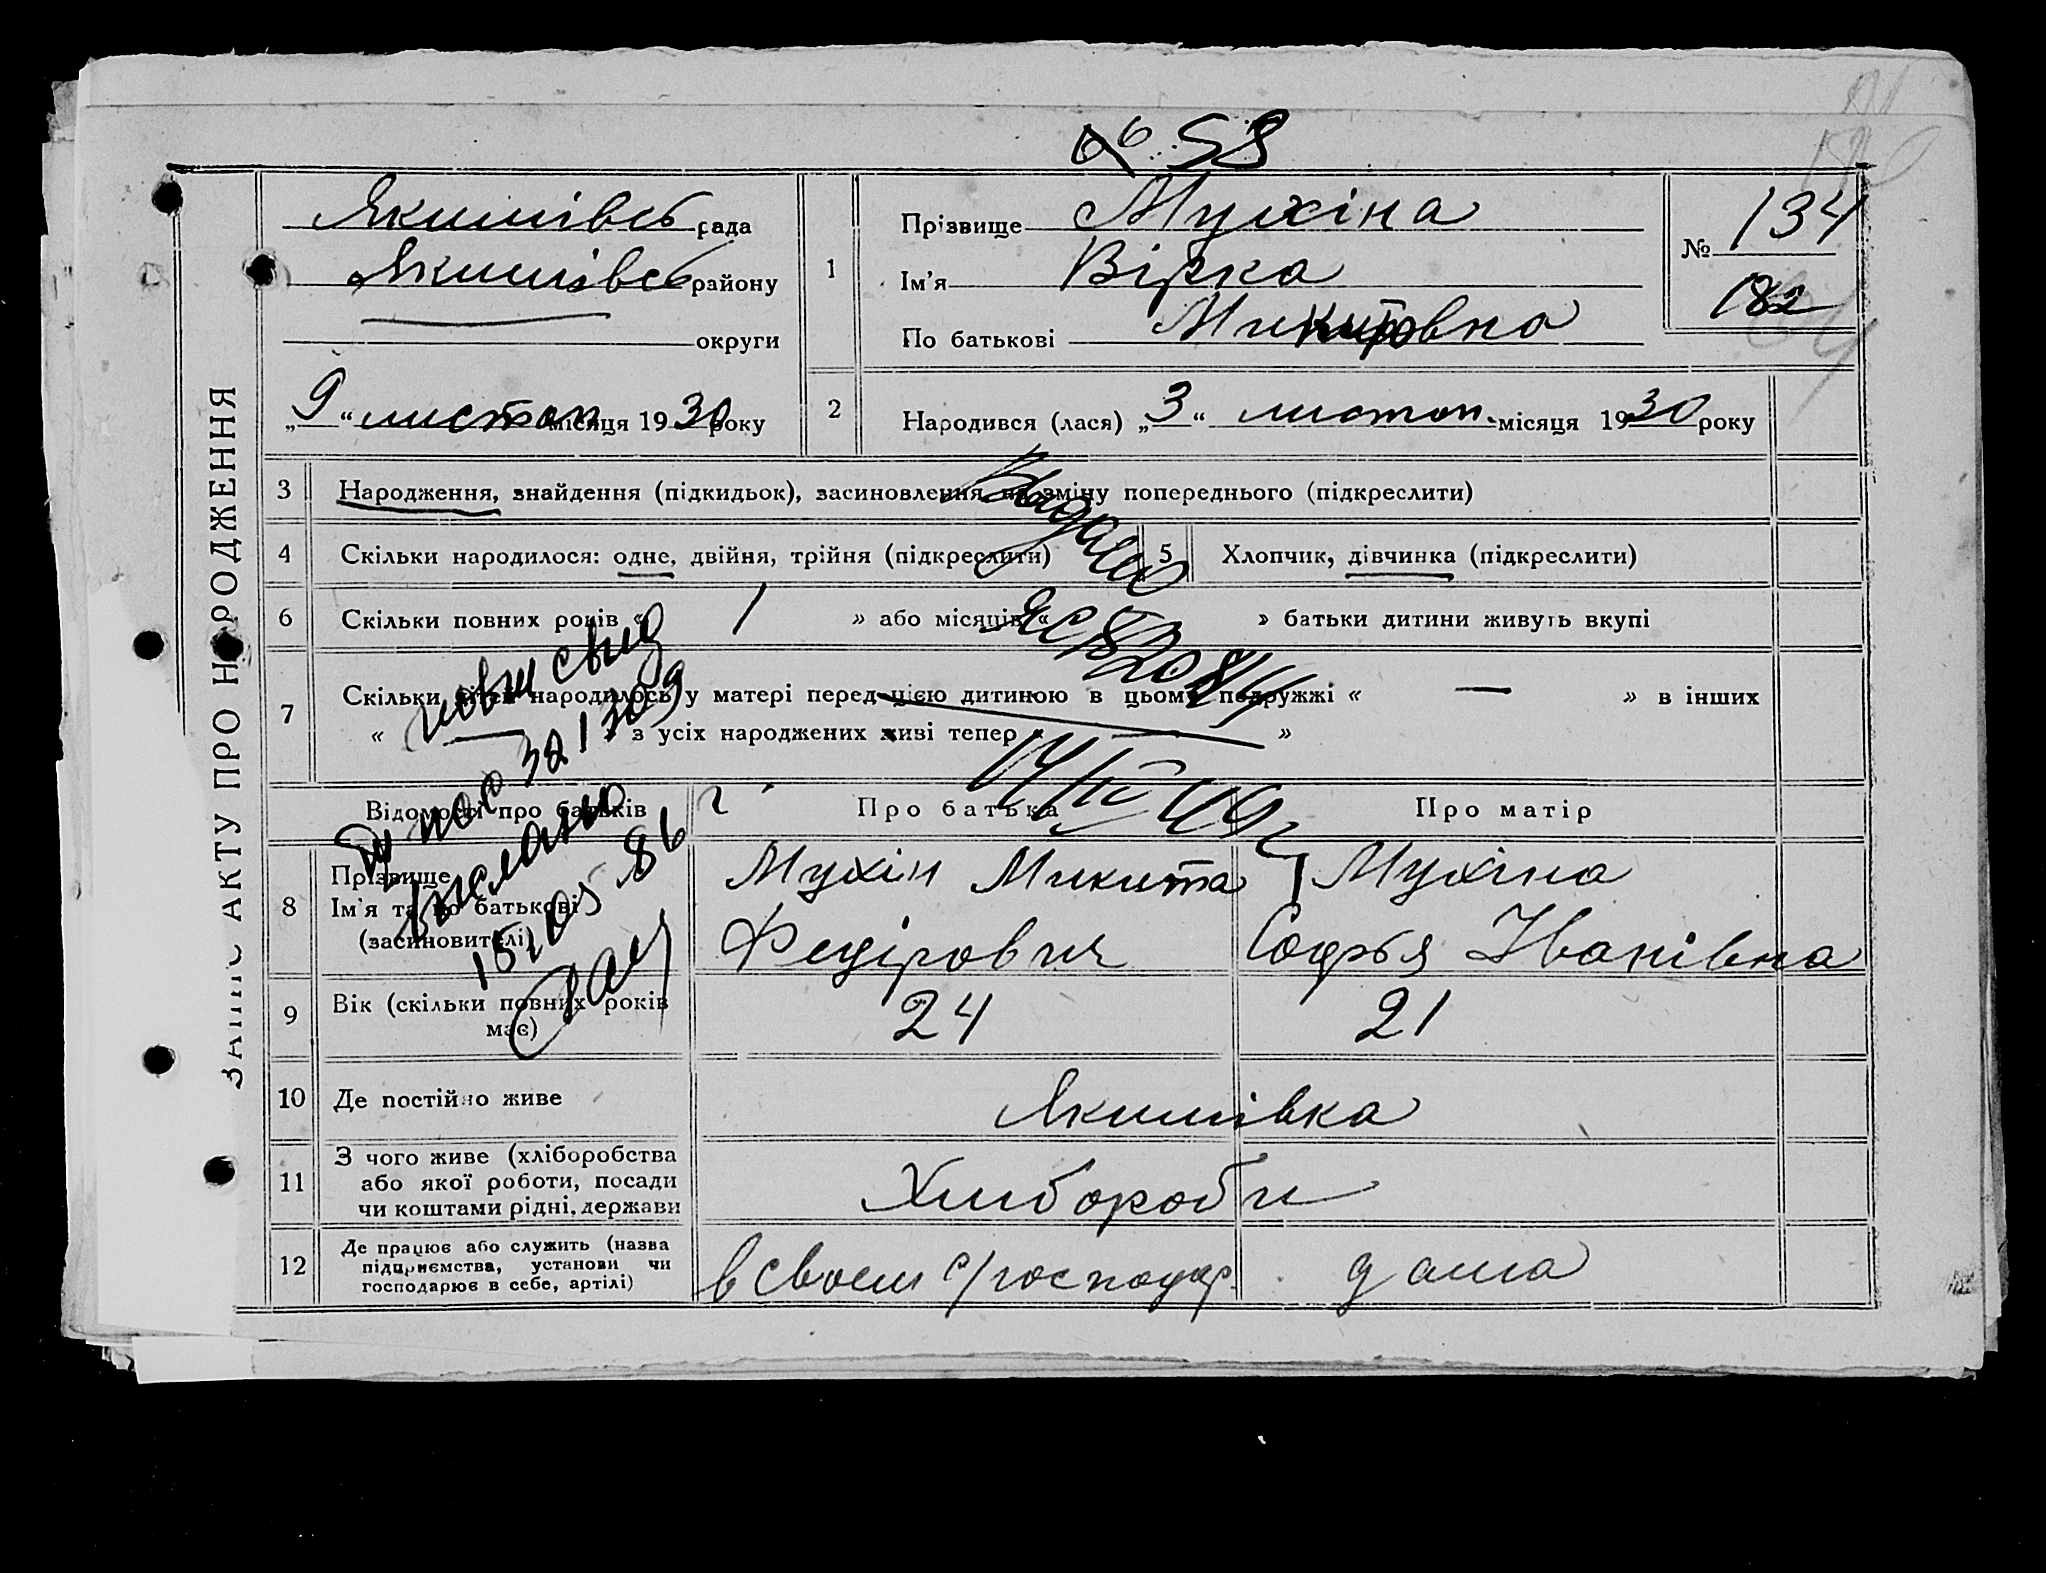 № 58
ЗАПИС АКТУ ПРО НАРОДЖЕННЯ
Якимівсь рада
Якимівсь району
округи
„9“ листоп місяця 1930 року
1
Прізвище Мухіна
Ім'я Вірка
По батькові Микитовна
№ 134
182
2
Народився (лася) „3“ листоп. місяця 1930 року
3 Народження, знайдення (підкидьок), засиновлення, на зміну попереднього (підкреслити)
4 Скільки народилося: одне, двійня, трійня (підкреслити) 5 Хлопчик, дівчинка (підкреслити)
6 Скільки повних років « 1 » або місяців « » батьки дитини живуть вкупі
7 Скільки дітей народилось у матері перед цією дитиною в цьому подружжі « — » в інших
« — » з усіх народжених живі тепер « — »
Відомості про батьків Про батька Про матір
8 Прізвище
Ім'я та по батькові
(засиновителі)
Мухін Микита
Федірович
Мухіна
Софья Іванівна
9 Вік (скільки повних років
має)
24 21
10 Де постійно живе Якимівка
11 З чого живе (хліборобства
або якої роботи, посади
чи коштами рідні, держави
Хлибороби
12 Де працює або служить (назва
підприємства, установи чи
господарює в себе, артілі)
в своем с/господар. дома
Выдано
14/IV 49 г
выслано
15.05.86